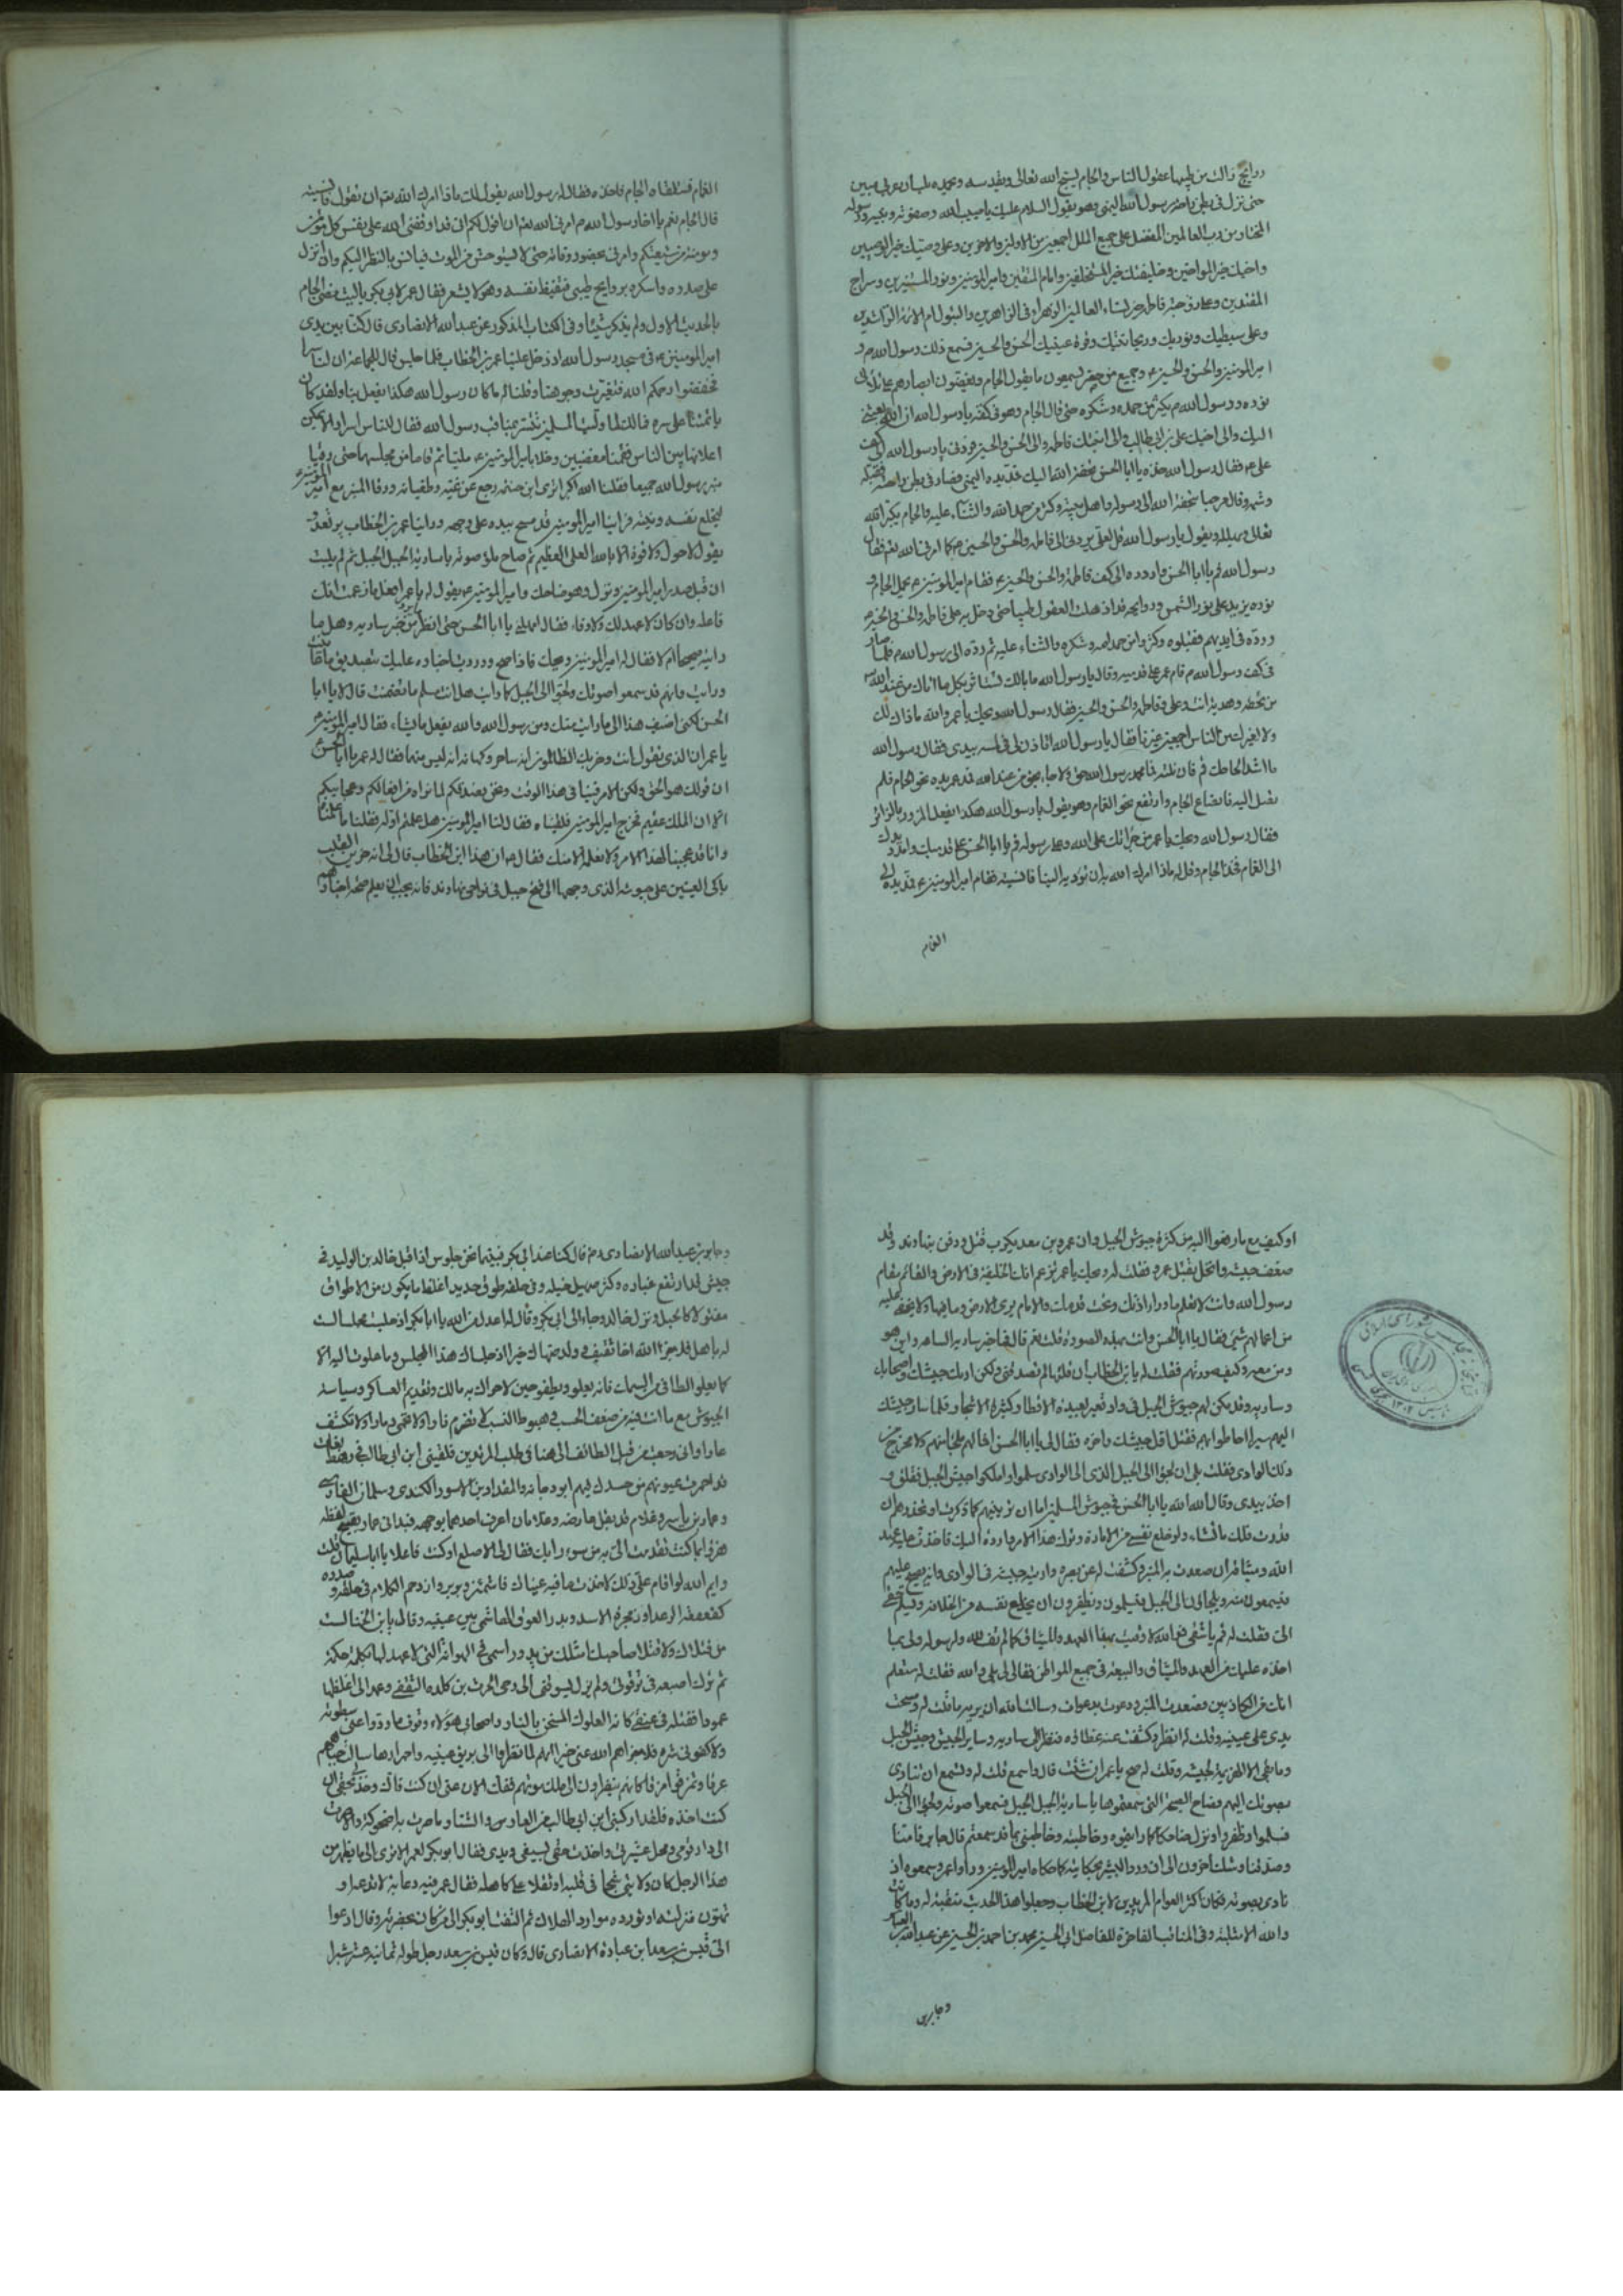 روايح ذالك من طيبها عقول الناس والجام يسبح الله تعالى ويقدسه ويمجده بلسان عربي مبين
حتى نزل في بطن راحة رسول الله اليمنى وهو يقول السلام عليك يا حبيب الله وصفوته ونبيه ورسوله
المختار من رب العالمين المفضل على جميع الملل اجمعين من الاولين والاخرين وعلى وصيك خير الوصيين
واخيك خير المواخين وخليفتك خير المستخلفين وامام المتقين وامير المؤمنين ونور المستنيرين وسراج
المقتدين وعلى زوجته فاطمة خير نساء العالمين الزهراء في الزاهرين والبتول ام الائمة الراشدين
وعلى سبطيك ونوريك وريحانتيك وقرة عينيك الحسن والحسين فسمع ذلك رسول الله ص و
امير المؤمنين والحسن والحسين ع وجميع من حضر يسمعون ما يقول الجام ويغضون ابصارهم عن تلألؤ
نوره ورسول الله ص يكثر من حمده وشكره حتى قال الجام وهو في كفه يا رسول الله ان الله بعثني
اليك والى اخيك علي بن ابي طالب والى ابنتك فاطمة والى الحسن والحسين فردني يا رسول الله الى كف
علي ع فقال رسول الله خذه يا ابا الحسن بتحفة الله اليك فمد يده اليمنى فصار في بطن راحته فقبله
وشمه وقال مرحبا بتحفة الله الى رسوله واهل بيته وكثر من حمد الله والثناء عليه والجام يكبر الله
تعالى ويهلله ويقول يا رسول الله قل لعلي يردني الى فاطمة والحسن والحسين ع كما امرني الله نعم فقال
رسول الله قم يا ابا الحسن واردده الى كف فاطمة والحسن والحسين ع فقام امير المؤمنين ع يحمل الجام و
نوره يزيد على نور الشمس وروايحه قد اذهلت العقول طيبا حتى دخل به على فاطمة والحسن والحسين ع
ورده في ايديهم فقبلوه وكثروا من حمد الله وشكره والثناء عليه ثم رده الى رسول الله ص فلما صار
في كف رسول الله ص قام عمر على قدميه وقال يا رسول الله ما بالك تستاثر بكل ما اتاك من عند الله
من تحفة وهدية انت وعلي وفاطمة والحسن والحسين فقال رسول الله ويحك يا عمر والله ما ذاك لك
ولا لغيرك من الناس اجمعين غيرنا فقال يا رسول الله اتاذن لي في لمسه بيدي فقال رسول الله
ما اشد الحاحك قم فان نلته فما محمد رسول الله حق ولا جاء بحق من عند الله فمد عمر يده نحو الجام فلم
يصل اليه فانصاع الجام وارتفع نحو الغمام وهو يقول يا رسول الله هكذا يفعل المزور بالزائر
فقال رسول الله ويحك يا عمر من جرأتك على الله وعلى رسوله قم يا ابا الحسن على قدميك وامدد يدك
الى الغمام فخذ الجام وقل له ماذا امرك الله به ان تؤديه الينا فانسيته فقام امير المؤمنين ع فمد يده الى
الغمام
الغمام فتلقاه الجام فاخذه فقال له رسول الله يقول لك ماذا امرك الله نعم ان تقول فانسيته
قال الجام نعم يا اخا رسول الله ص امرني الله نعم ان اقول لكم اني قد اوقفني الله على نفس كل مؤمن
ومومنة من شيعتكم وامرني بحضور وفاته حتى لا يستوحش من الموت فيأنس بالنظر اليكم وان انزل
على صدره واسكره بروايح طيبي فتقبض نفسه وهو لا يشعر فقال عمر لابي بكر يا ليت مضى الجام
بالحديث الاول ولم يذكر شيئا وفي الكتاب المذكور عن عبد الله الانصاري قال كنا بين يدي
امير المومنين ع في مسجد رسول الله اذ دخل علينا عمر بن الخطاب فلما جلس قال للجماعة ان لنا سرا
فخففوا رحمكم الله فتغيرت وجوهنا وقلنا له ما كان رسول الله هكذا يفعل بنا ولقد كان
يأتمننا على سره فما لك لما وليت المسلمين تتستر بمناقب رسول الله فقال للناس اسرار لا يمكن
اعلانها بين الناس فقمنا مغضبين وخلا بامير المؤمنين ع مليا ثم قاما من مجلسهما حتى رقيا
منبر رسول الله جميعا فقلنا الله اكبر اترى ابن حنتمه رجع عن غيه وطغيانه ورقا المنبر مع امير المؤمنين ع
ليخلع نفسه ويثبته فراينا امير المؤمنين قد مسح بيده على وجهه وراينا عمر بن الخطاب يرتعد و
يقول لا حول ولا قوة الا بالله العلي العظيم ثم صاح ملؤ صوته يا سارية الجبل الجبل ثم لم يلبث
ان قبل صدر امير المؤمنين ونزل وهو ضاحك وامير المؤمنين ع يقول له يا عمر افعل ما زعمت انك
فاعله وان كان لا عهد لك ولا وفاء فقال امهلني يا ابا الحسن حتى انظر من خبر سارية وهل ما
رايته صحيحا ام لا فقال له امير المؤمنين ويحك فاذا صح ووردت اخباره عليك بتصديق ما عاينت
ورايت وانهم قد سمعوا صوتك ولجؤا الى الجبل كما رايت هل انت مسلم ما تضمنت قال لا يا ابا
الحسن لكني اضيف هذا الى ما رايت منك ومن رسول الله والله يفعل ما يشاء فقال امير المؤمنين ع
يا عمر ان الذي تقول انت وحزبك الظالمون انه سحر وكهانة انه ليس منهما فقال له عمر يا ابا الحسن
ان قولك هو الحق ولكن الامر فينا في هذا الوقت ونحن نصدقكم لما نراه من افعالكم وعجايبكم
الا ان الملك عقيم فخرج امير المؤمنين فلقيناه فقال لنا امير المؤمنين هل علمتم اوله فقلنا ما علمنا
وانا قد عجبنا لهذا الامر ولا نعلمه الا منك فقال ع ان هذا ابن الخطاب قال لي انه حزين القلب
باكي العينين على جيوشه الذي وجهها الى فتح جبل في نواحي نهاوند فانه يحب ان يعلم صحة اخبارهم
او كيف مع ما رفعوا اليه من كثرة جيوش الجبل وان عمرو بن معد يكرب قتل ودفن بنهاوند وقد
ضعف جيشه وانحل بقتل عمرو فقلت له ويحك يا عمر تزعم انك الخليفة في الارض والقائم مقام
رسول الله وانت لا تعلم ما وراء اذنك وتحت قدمك والامام يرى الارض وما فيها ولا يخفى عليه
من اعمالهم شئ فقال يا ابا الحسن وانت بهذه الصورة قلت نعم قال فما خبر سارية الساعة واين هو
ومن معه وكيف صورتهم فقلت له يابن الخطاب ان قلتها لم تصدقني ولكن اريك جيشك واصحابك
وسارية وقد كمن لهم جيوش الجبل في واد قعير بعيدة الاقطار كثيرة الاشجار فلما سار جيشك
اليهم سيرا احاطوا بهم فقتل اول جيشك واخره فقال لي يا ابا الحسن فما لهم ملجأ منهم ولا مخرج من
ذلك الوادي فقلت بلى ان لحقوا الى الجبل الذي الى الوادي سلموا وملكوا جيش الجبل فقلق و
اخذ بيدي وقال الله الله يا ابا الحسن في جيوش المسلمين اما ان ترينيهم كما ذكرت او تحذرهم ان
قدرت فلك ما تشاء ولو خلع نفسي من الامارة وترك هذا الامر وارده اليك فاخذت عليه عهد
الله وميثاقه ان صعدت به المنبر وكشفت له عن بصره واريته جيشه في الوادي وانه يصيح عليهم
فيسمعون منه ويلجأون الى الجبل فيسلمون ويظفرون ان يخلع نفسه من الخلافة ويسلم حقي
الي فقلت له قم يا شقي فوالله لا وفيت بهذا العهد والميثاق كما لم تف لله ولرسوله ولي بما
اخذه عليك من العهد والميثاق والبيعة في جميع المواطن فقال لي بلى والله فقلت له ستعلم
انك من الكاذبين فصعدت المنبر ودعوت بدعوات وسالت الله ان يريه ما قلت له ومسحت
يدي على عينيه وقلت له انظر وكشفت عنه غطاءه فنظر الى سارية وساير الجيش وجيش الجبل
وما بقي الا الهزيمة لجيشه وقلت له صح يا عمر ان شئت قال واسمع قلت له وتسمع ان تنادي
بصوتك اليهم فصاح الصيحة التي سمعتموها يا سارية الجبل الجبل فسمعوا صوته ولجؤا الى الجبل
فسلموا وظفروا ونزل ضاحكا كما رايتموه وخاطبته وخاطبني بما قد سمعتم قال جابر فامنا
وصدقنا وشك اخرون الى ان ورد البشير بحكاية ما حكاه امير المؤمنين وراه عمر وسمعوه اذ
نادى بصوته فكان اكثر العوام المرتدين لابن الخطاب وجعلوا هذا الحديث منقبة له وما كانت
والله الا مثلبة وفي المناقب الفاخرة للفاضل ابي الحسين محمد بن احمد بن الحسين عن عبد الله بن العباس
وجابر بن
وجابر بن عبد الله الانصاري رض قال كنا عند ابي بكر فبينما نحن جلوس اذ اقبل خالد بن الوليد في
جيش قد ارتفع غباره وكثر صهيل خيله وفي حلقه طوق حديد اغلظ ما يكون من الاطواق
له يا هل فلا جزا الله اخا ثقيف ولد حنتمك خيرا اذ جلسك هذا المجلس وما علوت اليه الا
كما يعلو الطافي من السمك فانه يعلو ويطفو حين لا حراك به مالك وتقديم العساكر وسياسة
الجيوش مع ما انت فيه من ضعف الحسب
عارا واني رجعت من قبل الطائف الى هنا في طلب المرتدين فلقيني ابن ابي طالب في رهط
قد احمرت عيونهم من حسدك فيهم ابو دجانه والمقداد بن الاسود الكندي وسلمان الفارسي
وعمار بن ياسر وغلام قد بقل عارضه وغلامان اعرف احدهما بوجهه فبدا لي عمار بقبيح لفظه
وايم الله لو اقام على ذلك لاخذت ما فيه عيناك فاشمئز وبربر وازدحم الكلام في حلقه وصدره
كقعقعة الرعد او زمجرة الاسد وبدر العرق الهاشمي بين عينيه وقال يابن الخنا
ثم ترك اصبعه في ترقوتي ولم يزل يسوقني الى رحى الحرث بن كلده الثقفي وعمد الى اغلظها
عمودا ففتله في عنقي كانه العلوك المسخن بالنار واصحابي هؤلاء وقوف ما ردوا عني سطوته
ولا كفوني شره فلا جزاهم الله عني خيرا انهم لما نظروا الى بريق عينيه واحمرارها سالت جباههم
عرقا وتمزقوا مزقا كانهم ينظرون الى ملك موتهم فقلت الان عني ان كنت قاتلا وخذ بحقي ان
كنت اخذه
الى دار قومي ومحل عشيرتي
هذا الرجل كان ولايتي شجا في قلبه او ثقلا على كاهله فقال عمر فيه دعابة لا تدعه او
تهوى منزلته او تورده موارد الهلاك ثم التفت ابو بكر الى من كان بحضرته وقال ادعوا
الي قيس بن سعد ابن عبادة الانصاري قال وكان قيس بن سعد رجل طوله ثمانية عشر شبرا